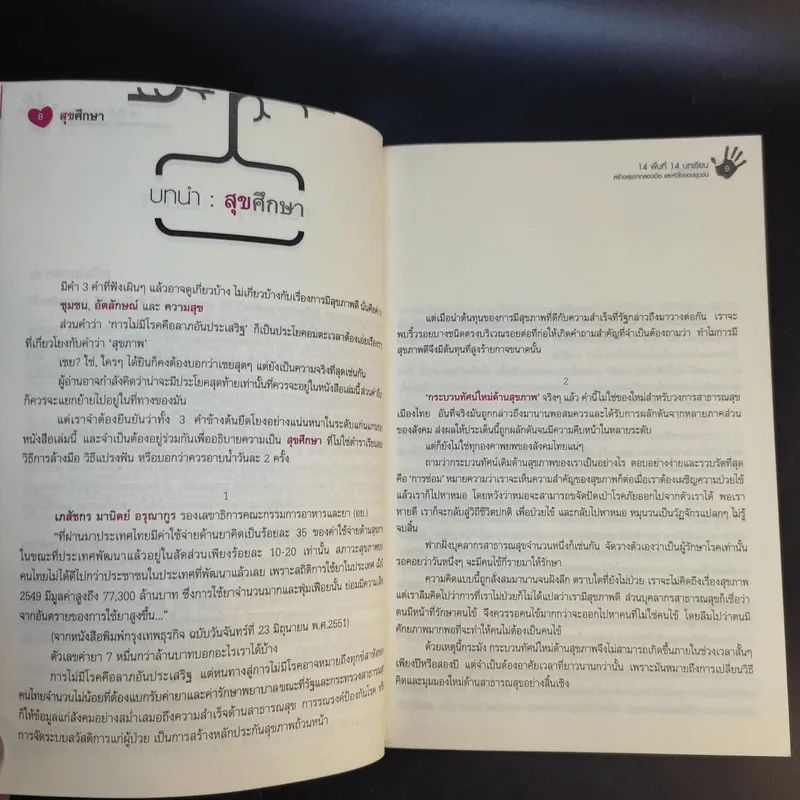 8 สุขศึกษา
บทนำ : สุขศึกษา
มีคำ 3 คำที่ฟังเผินๆ แล้วอาจดูเกี่ยวบ้าง ไม่เกี่ยวบ้างกับเรื่องการมีสุขภาพดี นั่นคือคำว่า
ชุมชน, อัตลักษณ์ และ ความสุข
ส่วนคำว่า ‘การไม่มีโรคคือลาภอันประเสริฐ’ ก็เป็นประโยคอมตะเวลาต้องเอ่ยเรื่องราว
ที่เกี่ยวโยงกับคำว่า ‘สุขภาพ’
เชย? ใช่, ใครๆ ได้ยินก็คงต้องบอกว่าเชยสุดๆ แต่ยังเป็นความจริงที่สุดเช่นกัน
ผู้อ่านอาจกำลังคิดว่าน่าจะมีประโยคสุดท้ายเท่านั้นที่ควรจะอยู่ในหนังสือเล่มนี้ ส่วนคำอื่น
ก็ควรจะแยกย้ายไปอยู่ในที่ทางของมัน
แต่เราจำต้องยืนยันว่าทั้ง 3 คำข้างต้นยึดโยงอย่างแน่นหนาในระดับแก่นแกนของ
หนังสือเล่มนี้ และจำเป็นต้องอยู่ร่วมกันเพื่ออธิบายความเป็น สุขศึกษา ที่ไม่ใช่ตำราเรียนสอน
วิธีการล้างมือ วิธีแปรงฟัน หรือบอกว่าควรอาบน้ำวันละ 2 ครั้ง
1
เภสัชกร มานิตย์ อรุณากูร รองเลขาธิการคณะกรรมการอาหารและยา (อย.)
“ที่ผ่านมาประเทศไทยมีค่าใช้จ่ายด้านยาคิดเป็นร้อยละ 35 ของค่าใช้จ่ายด้านสุขภาพ
ในขณะที่ประเทศพัฒนาแล้วอยู่ในสัดส่วนเพียงร้อยละ 10-20 เท่านั้น สภาวะสุขภาพของ
คนไทยไม่ได้ดีไปกว่าประชาชนในประเทศที่พัฒนาแล้วเลย เพราะสถิติการใช้ยาในประเทศ เมื่อปี
2549 มีมูลค่าสูงถึง 77,300 ล้านบาท ซึ่งการใช้ยาจำนวนมากและฟุ่มเฟือยนั้น ย่อมมีความเสี่ยง
จากอันตรายของการใช้ยาสูงขึ้น...”
(จากหนังสือพิมพ์กรุงเทพธุรกิจ ฉบับวันจันทร์ที่ 23 มิถุนายน พ.ศ.2551)
ตัวเลขค่ายา 7 หมื่นกว่าล้านบาทบอกอะไรเราได้บ้าง
การไม่มีโรคคือลาภอันประเสริฐ แต่หนทางสู่การไม่มีโรคอาจหมายถึงทุกข์สาหัสของ
คนไทยจำนวนไม่น้อยที่ต้องแบกรับค่ายาและค่ารักษาพยาบาล ขณะที่รัฐและกระทรวงสาธารณสุข
ก็ให้ข้อมูลแก่สังคมอย่างสม่ำเสมอถึงความสำเร็จด้านสาธารณสุข การรณรงค์ป้องกันโรค หรือ
การจัดระบบสวัสดิการแก่ผู้ป่วย เป็นการสร้างหลักประกันสุขภาพถ้วนหน้า
14 พื้นที่ 14 บทเรียน
สร้างสุขจากสองมือ และหัวใจของชุมชน
9
แต่เมื่อนำต้นทุนของการมีสุขภาพที่ดีกับความสำเร็จที่รัฐกล่าวถึงมาวางต่อกัน เราจะ
พบริ้วรอยบางชนิดตรงบริเวณรอยต่อที่ก่อให้เกิดคำถามสำคัญที่จำเป็นต้องถามว่า ทำไมการมี
สุขภาพดีจึงมีต้นทุนที่สูงร้ายกาจขนาดนั้น
2
‘กระบวนทัศน์ใหม่ด้านสุขภาพ’ จริงๆ แล้ว คำนี้ไม่ใช่ของใหม่สำหรับวงการสาธารณสุข
เมืองไทย อันที่จริงมันถูกกล่าวถึงมานานพอสมควรและได้รับการผลักดันจากหลายภาคส่วน
ของสังคม ส่งผลให้ประเด็นนี้ถูกผลักดันจนมีความคืบหน้าในหลายระดับ
แต่ก็ยังไม่ใช่ทองคาพยพของสังคมไทยแน่ๆ
ถามว่ากระบวนทัศน์เดิมด้านสุขภาพของเราเป็นอย่างไร ตอบอย่างง่ายและรวบรัดที่สุด
คือ ‘การซ่อม’ หมายความว่าเราจะเห็นความสำคัญของสุขภาพก็ต่อเมื่อเราต้องเผชิญความป่วยไข้
แล้วเราก็ไปหาหมอ โดยหวังว่าหมอจะสามารถขจัดปัดเป่าโรคภัยออกไปจากตัวเราได้ พอเรา
หายดี เราก็จะกลับสู่วิถีชีวิตปกติ เพื่อป่วยไข้ และกลับไปหาหมอ หมุนวนเป็นวัฏจักรแปลกๆ ไม่รู้
จบสิ้น
ฟากฝั่งบุคลากรสาธารณสุขจำนวนหนึ่งก็เช่นกัน จัดวางตัวเองว่าเป็นผู้รักษาโรคเท่านั้น
รอคอยว่าวันหนึ่งๆ จะมีคนไข้กี่รายมาให้รักษา
ความคิดแบบนี้ถูกสั่งสมมานานจนฝังลึก ตราบใดที่ยังไม่ป่วย เราจะไม่คิดถึงเรื่องสุขภาพ
แต่เราลืมคิดไปว่าการที่เราไม่ป่วยก็ไม่ได้แปลว่าเรามีสุขภาพดี ส่วนบุคลากรสาธารณสุขก็เชื่อว่า
ตนมีหน้าที่รักษาคนไข้ จึงควรรอคนไข้มากกว่าจะออกไปหาคนที่ไม่ใช่คนไข้ โดยลืมไปว่าตนมี
ศักยภาพมากพอที่จะทำให้คนไม่ต้องเป็นคนไข้
ด้วยเหตุนี้กระมัง กระบวนทัศน์ใหม่ด้านสุขภาพจึงไม่สามารถเกิดขึ้นภายในช่วงเวลาสั้นๆ
เพียงปีหรือสองปี แต่จำเป็นต้องอาศัยเวลาที่ยาวนานกว่านั้น เพราะมันหมายถึงการเปลี่ยนวิธี
คิดและมุมมองใหม่ด้านสาธารณสุขอย่างสิ้นเชิง